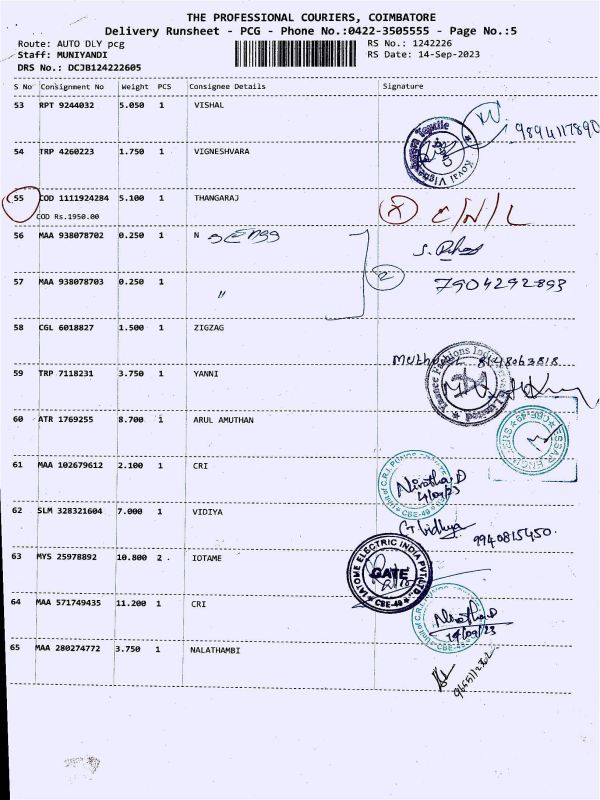 THE PROFESSIONAL COURIERS, COIMBATORE
Delivery Runsheet - PCG - Phone No.:0422-3505555 - Page No.:5
Route: AUTO DLY pcg RS No.: 1242226
Staff: MUNIYANDI RS Date: 14-Sep-2023
DRS No.: DCJB124222605
S No Consignment No Weight PCS Consignee Details Signature
53 RPT 9244032 5.050 1 VISHAL
9894117890
54 TRP 4260223 1.750 1 VIGNESHVARA
Textile
Kovai
55 COD 1111924284 5.100 1 THANGARAJ
COD Rs.1950.00
56 MAA 938078702 0.250 1 N
2
57 MAA 938078703 0.250 1 "
7904292893
58 CGL 6018827 1.500 1 ZIGZAG
8148063818
59 TRP 7118231 3.750 1 YANNI
60 ATR 1769255 8.700 1 ARUL AMUTHAN
ESSAR ENGINEERS
CBE-49
61 MAA 102679612 2.100 1 CRI
Unit of C.R.I. PUMPS
Nivetha D
14/09/23
CBE-49
62 SLM 328321604 7.000 1 VIDIYA
G Vidhya
9940815450.
63 MYS 25978892 10.800 2 . IOTAME
IATOME ELECTRIC INDIA PVT LTD.
GATE
CBE-49
64 MAA 571749435 11.200 1 CRI
Unit of C.R.I. PUMPS
Nivetha D
14/09/23
CBE-49
65 MAA 280274772 3.750 1 NALATHAMBI